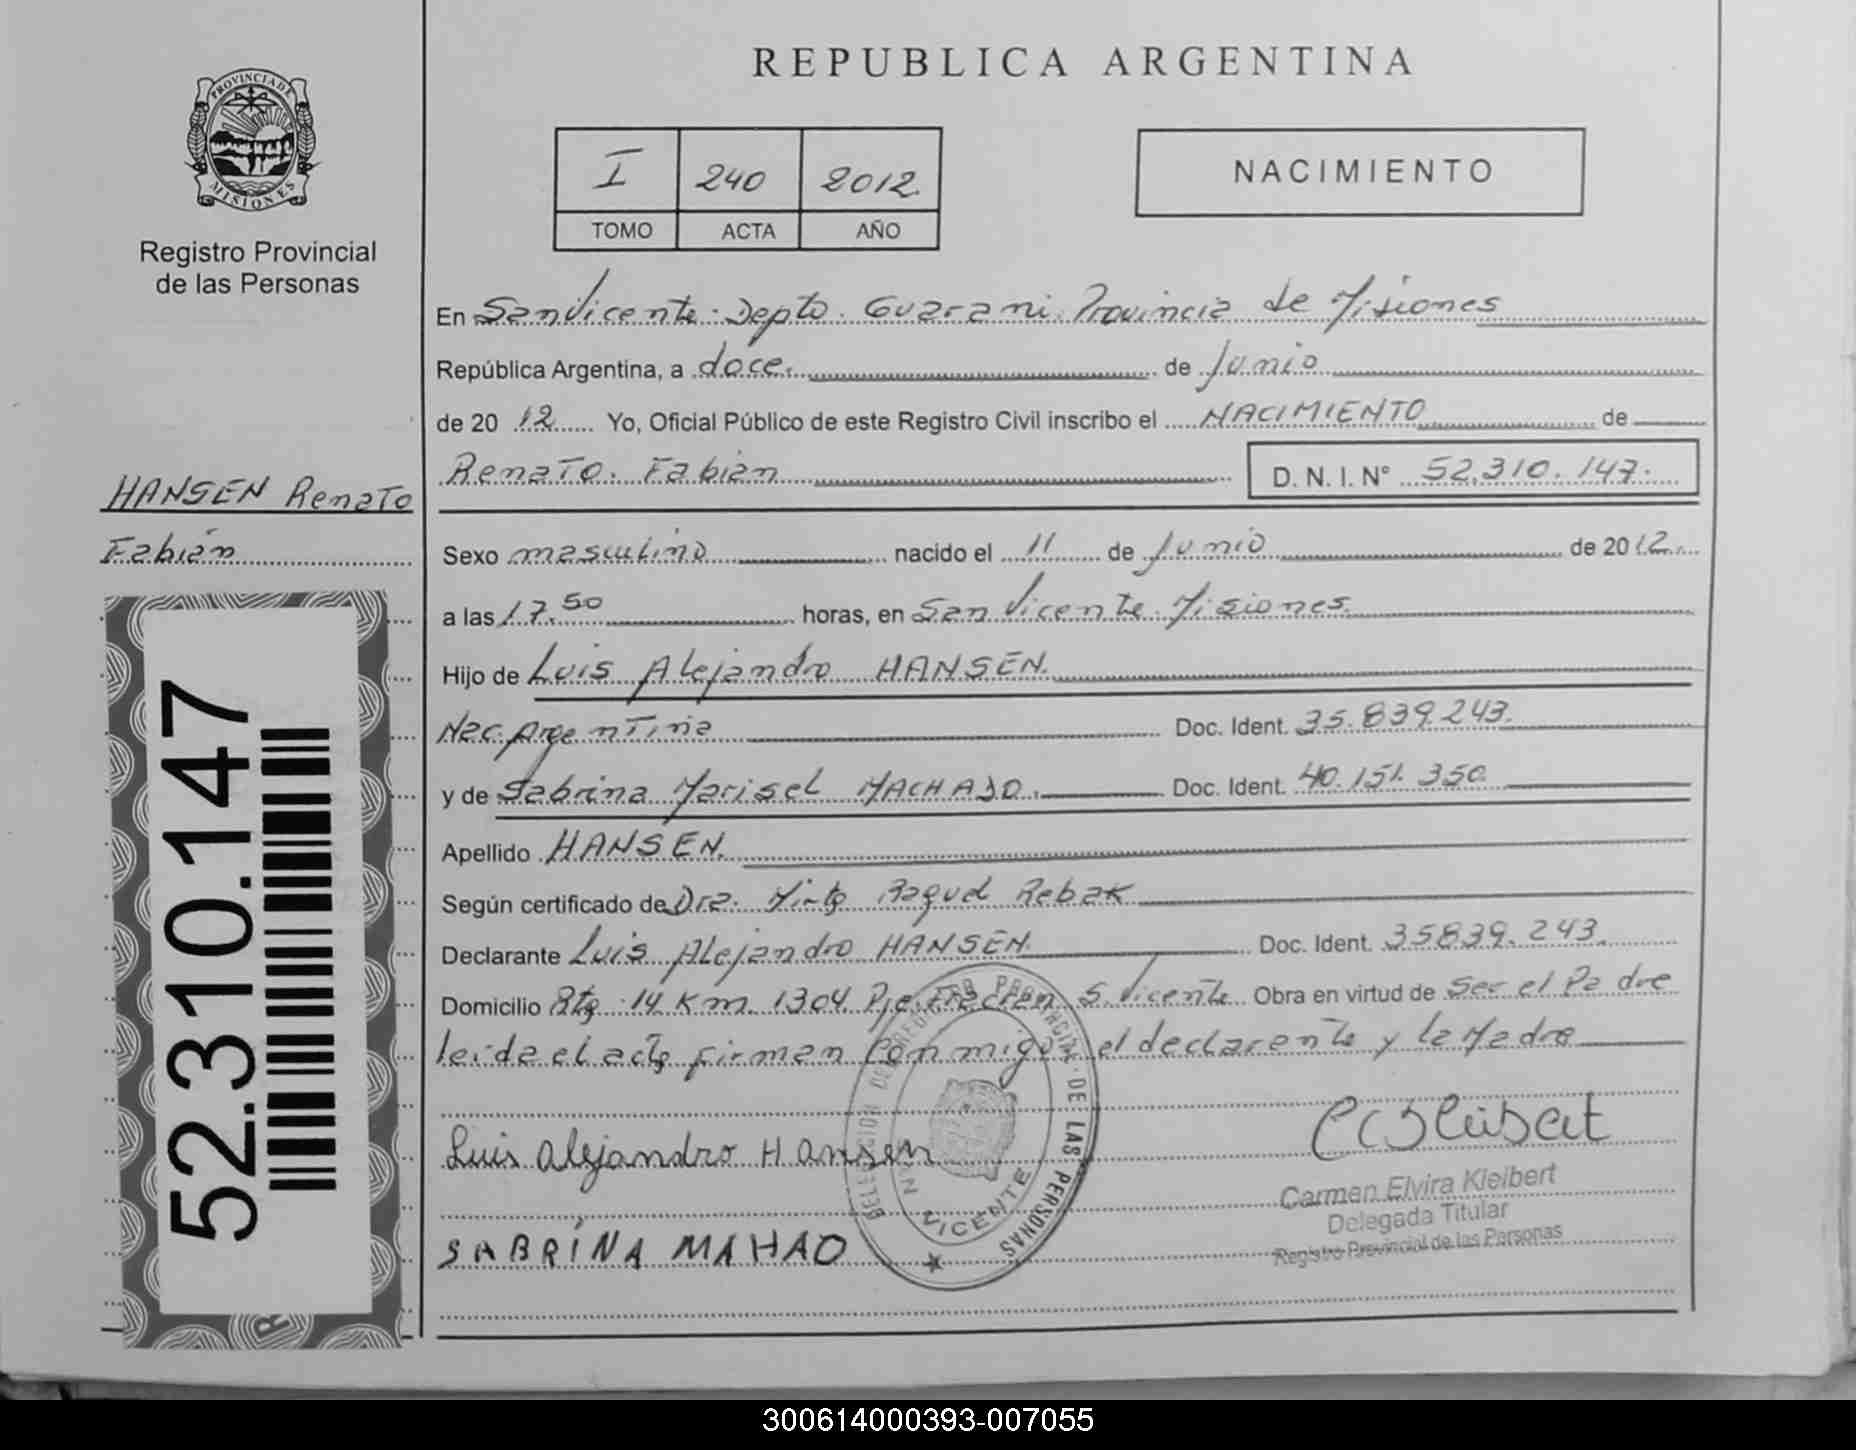 REPUBLICA ARGENTINA
PROVINCIA DE
MISIONES
Registro Provincial
de las Personas
I 240 2012.
TOMO ACTA AÑO
NACIMIENTO
En San Vicente. Depto. Guarani. Provincia de Misiones
República Argentina, a doce. de Junio
de 2012 Yo, Oficial Público de este Registro Civil inscribo el NACIMIENTO de
Renato. Fabián D. N. I. N° 52.310.147.
HANSEN Renato
Fabián
Sexo masculino nacido el 11 de Junio de 2012.
a las 17.50 horas, en San Vicente. Misiones.
Hijo de Luis Alejandro HANSEN.
Nac. Argentina Doc. Ident. 35.839.243.
y de Sabrina Marisel MACHADO. Doc. Ident. 40.151.350
Apellido HANSEN.
Según certificado de Dra. Raquel Rebak
Declarante Luis Alejandro HANSEN. Doc. Ident. 35839.243.
Domicilio Rta 14 Km. 1304. S. Vicente Obra en virtud de Ser el Padre
leida el acta firman conmigo el declarante y la Madre
Luis Alejandro Hansen
SABRINA MAHAO
DELEGACION DEL REGISTRO PROVINCIAL DE LAS PERSONAS
SAN VICENTE
Carmen Elvira Kleibert
Delegada Titular
Registro Provincial de las Personas
52.310.147
R
300614000393-007055